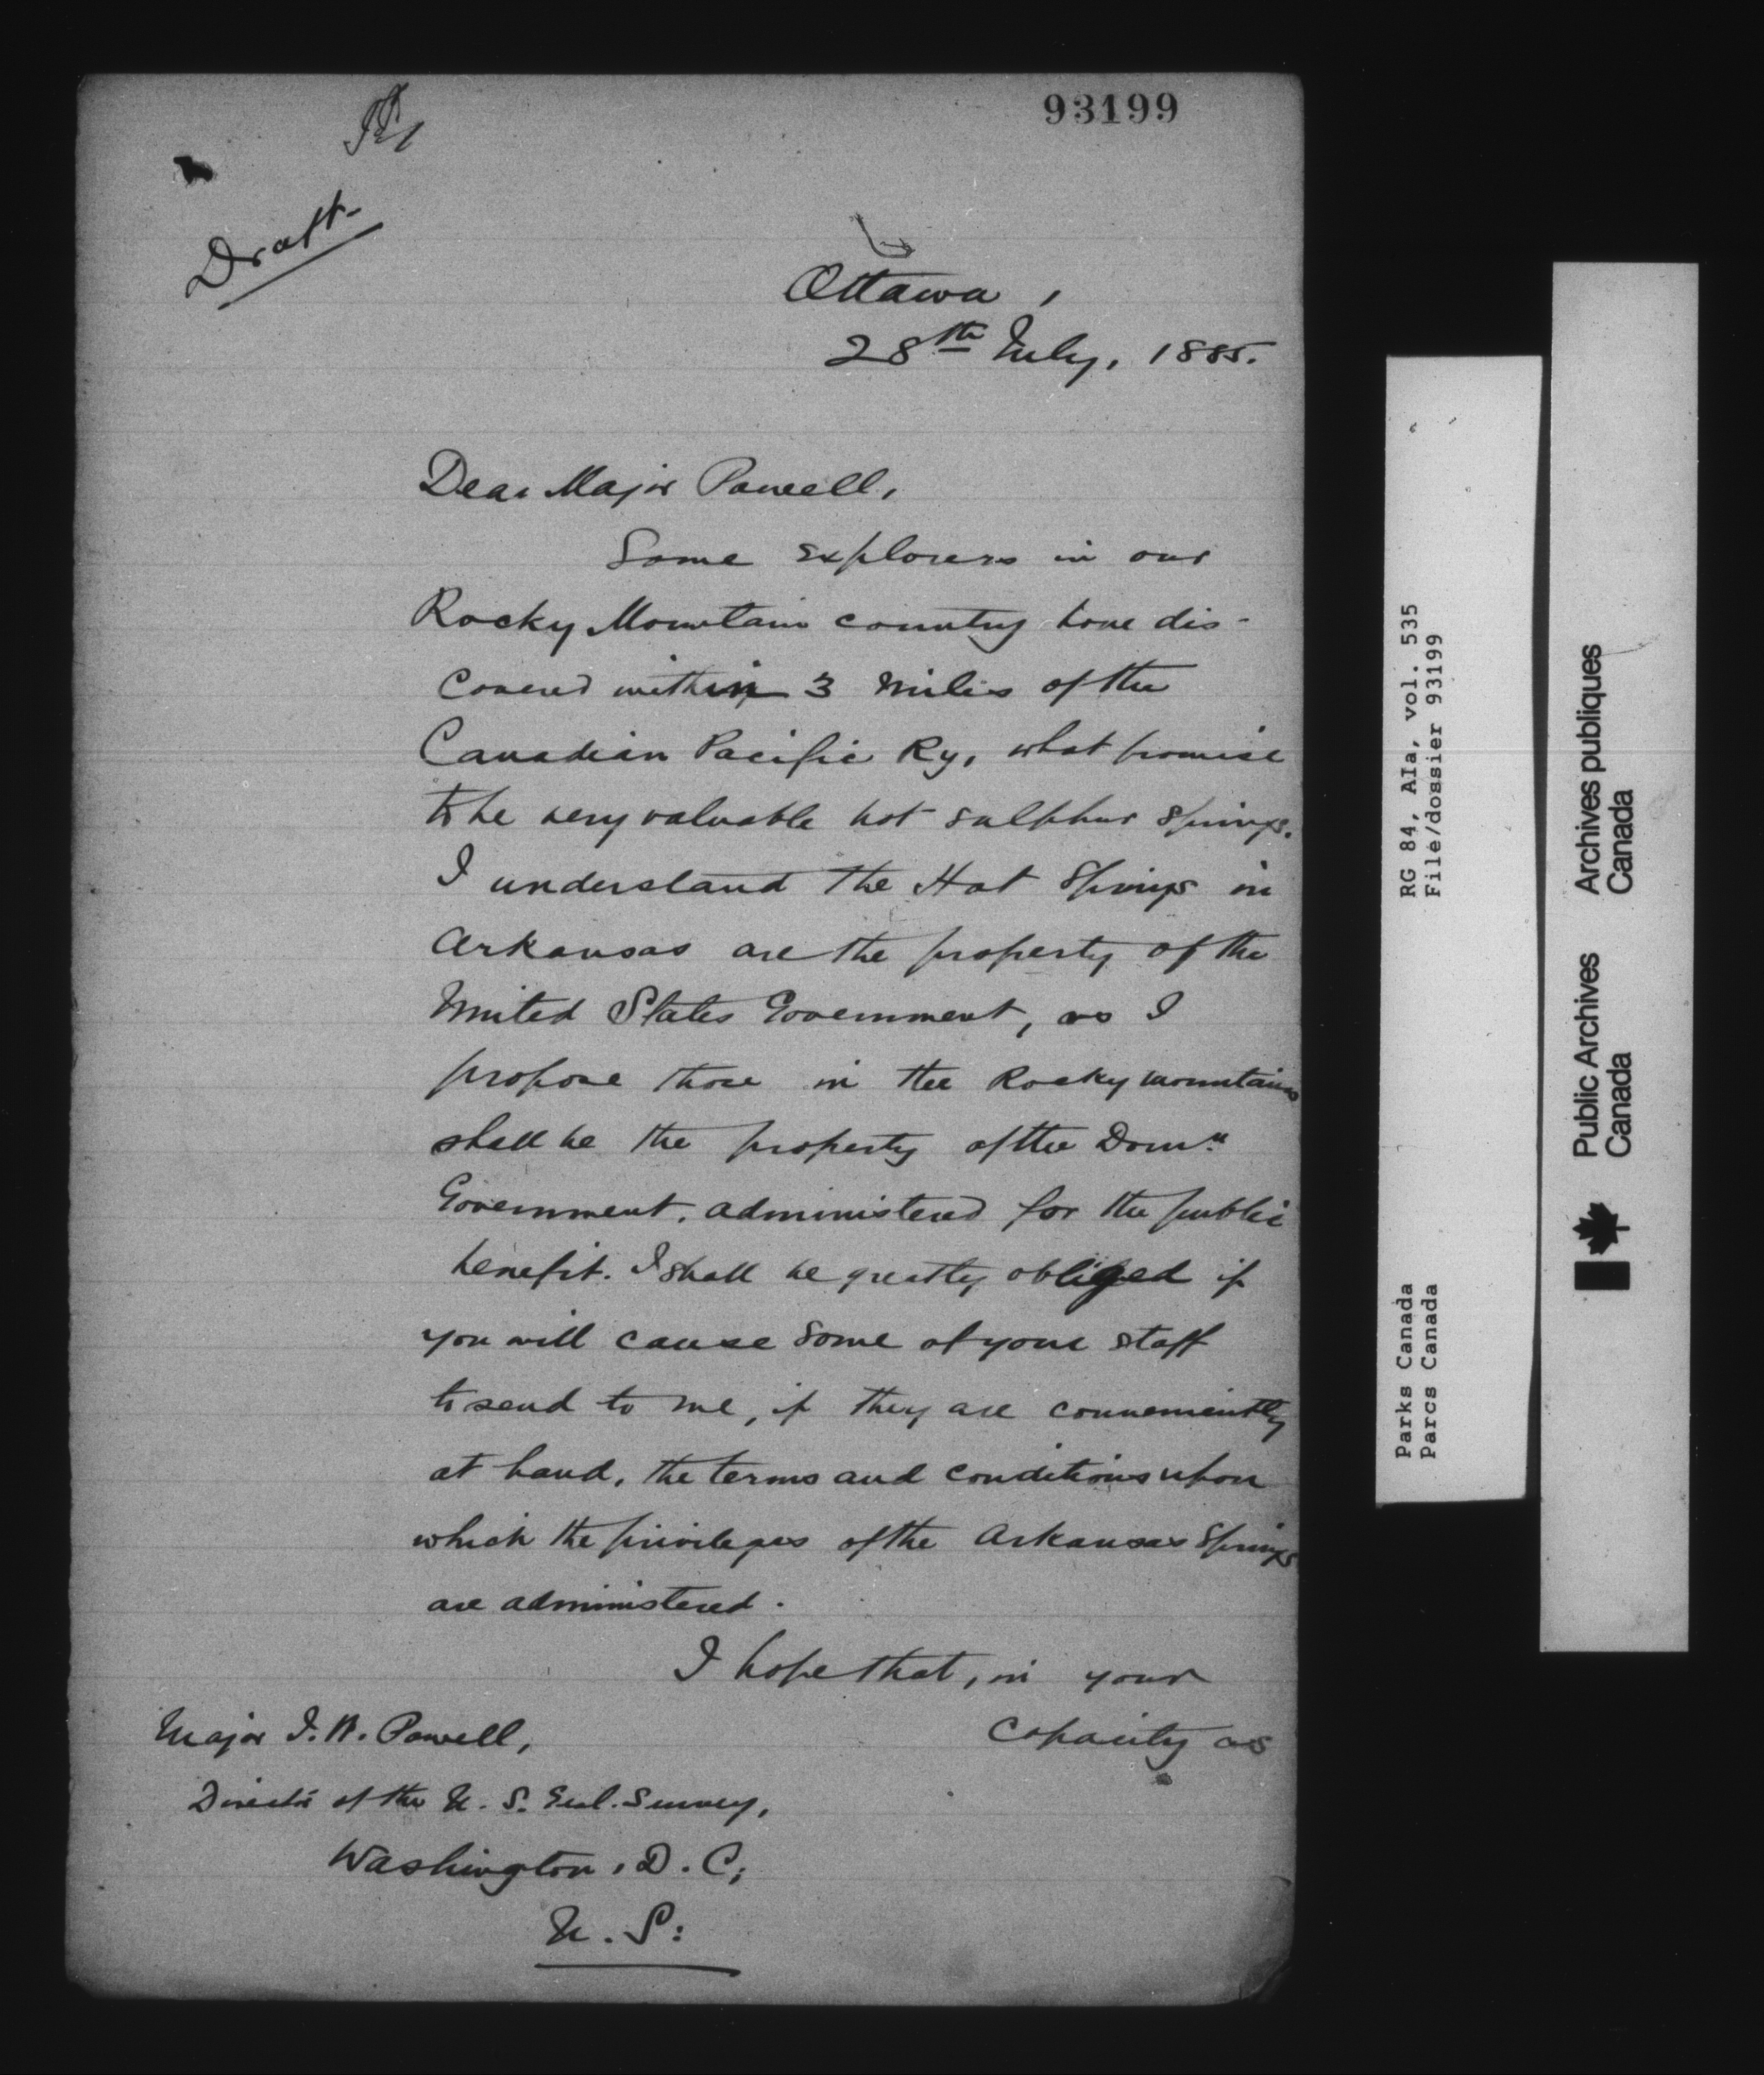 93199
Draft
Ottawa,
28th July, 1885.
Dear Major Powell,
Some explorers in our
Rocky Mountain country have dis-
covered within 3 miles of the
Canadian Pacific Ry, what promise
to be very valuable hot sulphur springs.
I understand the Hot Springs in
Arkansas are the property of the
United States Government, as I
propose those in the Rocky mountains
shall be the property of the Domn.
Government, administered for the public
benefit. I shall be greatly obliged if
you will cause some of your staff
to send to me, if they are conveniently
at hand, the terms and conditions upon
which the privileges of the Arkansas Springs
are administered.
I hope that, in your
capacity as
Major J. W. Powell,
Director of the U. S. Geol. Survey,
Washington, D. C,
U. S.
RG 84, AIa, vol. 535
File/dossier 93199
Parks Canada
Parcs Canada
Public Archives
Canada
Archives publiques
Canada